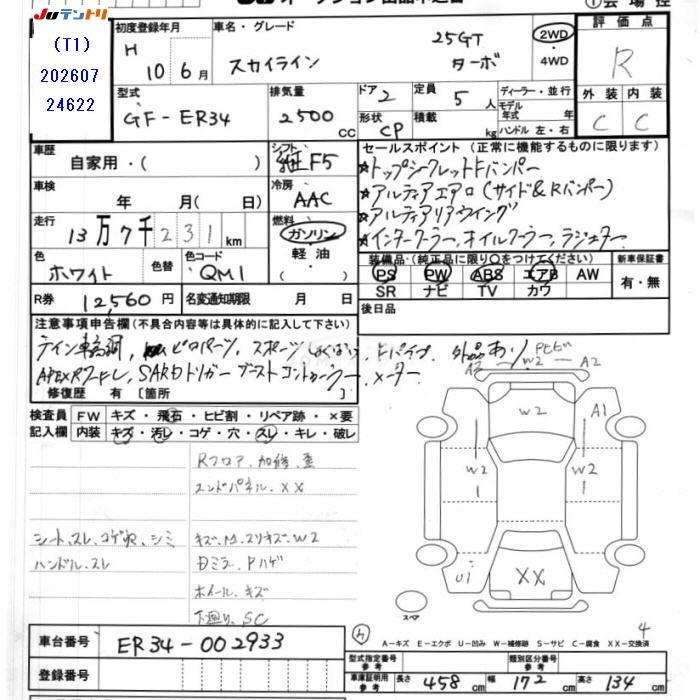 JUテントリ
(T1)
202607
24622
初度登録年月
H 10 6月
車名・グレード
スカイライン
25GT
ターボ
2WD
・
4WD
評価点
R
外装 内装
C C
型式
GF-ER34
排気量
2500 CC
ドア 2
形状 CP
定員 5 人
積載 kg
ディーラー・並行
モデル年式 年
ハンドル 左・右
車歴
自家用・( )
シフト
F5
冷房
AAC
車検
年 月(日)
走行
13万7千231km
燃料
ガソリン
・
軽油
( )
色
ホワイト
色替
色コード
QM1
R券 12,560円
名変通知期限 月 日
セールスポイント (正常に機能するものに限ります)
★トップシークレットFバンパー
★アルティアエアロ(サイド&Rバンパー)
★アルティアリアウイング
★インタークーラー、オイルクーラー、ラジエター
装備品(純正品に限り○をつけてください)
PS PW ABS エアB AW
SR ナビ TV カワ
新車保証書
有・無
後日品
注意事項申告欄(不具合内容等は具体的に記入して下さい)
テイン車高調、ピロパーツ、スポーツ Fパイプ、外品あり
APEXR SARDトリガー ブーストコントローラー、メーター
修復歴 有[箇所 ]
検査員記入欄
FW キズ・飛石・ヒビ割・リペア跡・×要
内装 キズ・汚レ・コゲ・穴・スレ・キレ・破レ
Rフロア、加修、歪
エンドパネル、XX
シート、スレ、コゲ穴、シミ
ハンドル、スレ
キズ、凹、スリキズ、W2
Dミラー、Pハゲ
ホイール、キズ
下廻り、SC
A2 W2 A2
W2
A1
W2
1
W2
1
U1
XX
スペア
4
A-キズ E-エクボ U-凹み W-補修跡 S-サビ C-腐食 XX-交換済
車台番号 ER34-002933
登録番号
型式指定番号 参考
類別区分番号 参考
車庫証明用 参考 長さ 458 cm 幅 172 cm 高さ 134 cm